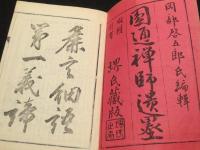 岡部啓五郎氏編輯
圓通禅師遺墨
堺氏藏版
麁言細語
第一義諦